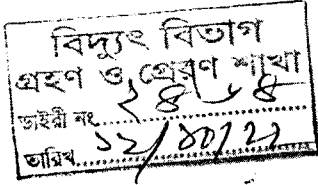 বিদ্যুৎ বিভাগ
গ্রহণ ও প্রেরণ শাখা
ডাইরী নং
তারিখ ১২/১০/২১